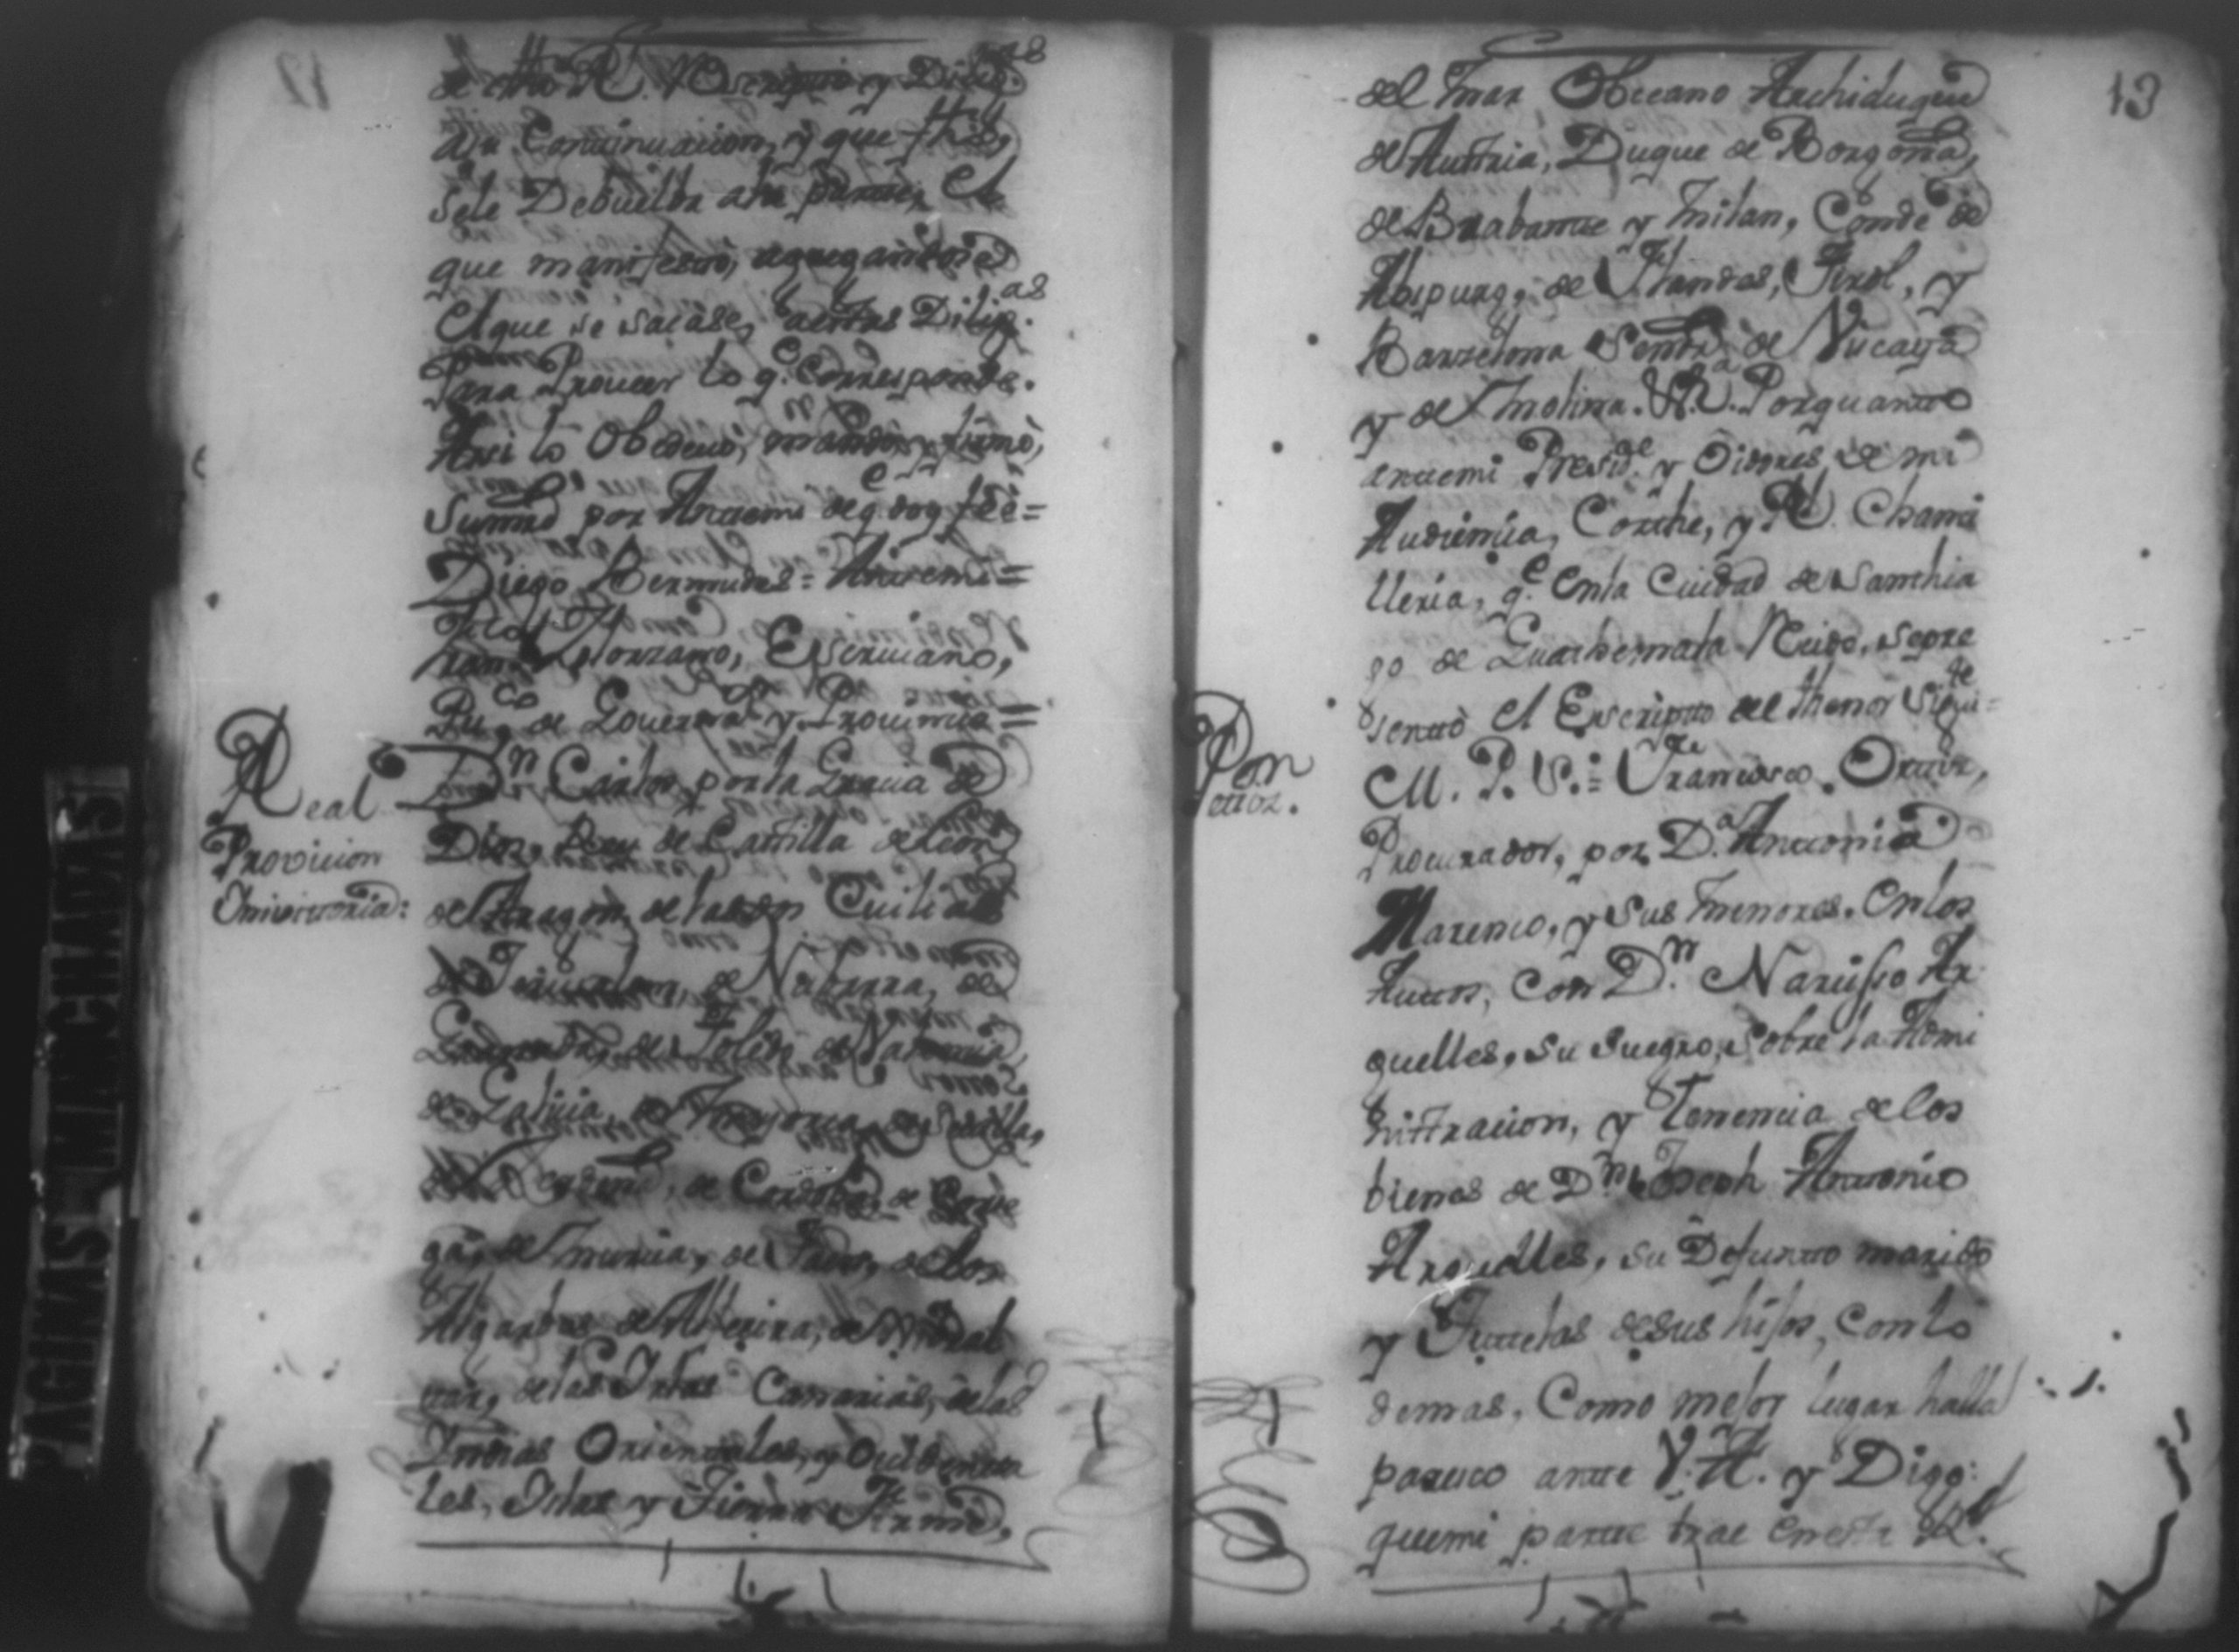 de dho Rl. Rescripto y Diligas
a su Continuacion, y que fho,
sele Debuelba ala parte, el
que manifestó, agregandose
el que se sacase, aestas Diligas.
Para Proueer lo qe. Corresponde.
Assi lo Obedeció, mandó, y firmó,
Sumrd por Antemi de qe. doy feè =
Diego Bermudes = Antemi =
Lorzano, Escriuano,
Puco. de Gouernon. y Prouincia =
Real
Provicion
Ynivitoria:
Dn Carlos, por la Gracia de
Dios, Rey de Castilla de Leon,
de Aragon, de las dos Cicilias
de Jerusalem, de Nabarra, de
Granada, de Toledo de Valencia,
de Galicia, de Mayorca, de Sevilla,
de Cerdeña, de Cordova, de Corse
ga, de Murcia, de Jaen, de los
Algarbes de Algecira, de Gibral
tar, de las Yslas Canarias, de las
Yndias Orientales, y Occidenta
les, Yslas y Tierra Firme,
13
del mar Occeano Archiduque
de Austria, Duque de Borgoña,
de Brabante y Milan, Conde de
Abspurg, de Flandes, Tirol, y
Barzelona Señor de Viscaya
y de Molina. &a. Porquanto
antemi Preside. y Oidores de mi
Audiencia, Corthe, y Rl. Chanci
lleria, qe. enla Ciudad de Santhia
go de Guathemala Recide, sepre
sentó el Escripto del thenor Siguite=
Peticion.
M. P. S.= Francisco Ortiz,
Procurador, por Da. Antonia
Marenco, y sus menores, enlos
Autos, con Dn. Narcisso Ar
guelles, su suegro, sobre la Admi
nistracion, y tenencia delos
bienes de Dn. Joseph Antonio
Arguelles, su Defunto marido
y Tutelas desus hijos, con lo
demas, Como mejor lugar halla
paresco ante V. A. y Digo:
quemi parte trae enesta Rl.